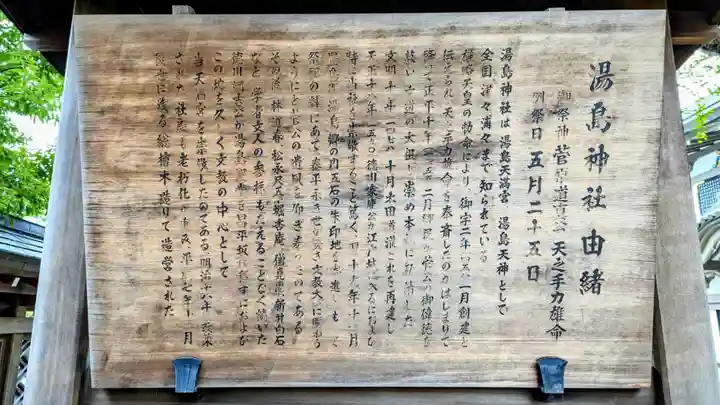 湯島神社由緒
御祭神 菅原道真公 天之手力雄命
例祭日 五月二十五日
湯島神社は 湯島天満宮 湯島天神として
全国津々浦々まで知られている
雄略天皇の勅命により 御宇二年 一月創建と
伝えられ 天之手力雄命を奉斎したのがはじまりで
降って正平十年 二月 郷民が菅公の御偉徳を
慕い 文道の大祖と崇め本社に勧請した
文明十年 十月 太田道灌これを再建し
天正十八年 徳川家康公が江戸城に入るにおよび
時 当社を崇敬すること篤く 十九年十一月
豊島郡湯島郷の内五石の朱印地を寄進し もって
祭祀の料にあて 泰平永き世が続き 文教大いに賑わう
ようにと 菅公の遺風を仰ぎ奉ったのである
その後 林道春 松永尺五 堀杏庵 僧堯恵 新井白石
など 学者文人の参拝もたえることなく続いた
徳川綱吉公が湯島聖堂を昌平坂に移すにおよび
この地を久しく文教の中心として
当天満宮を崇敬したのである 明治十八年 改築
された社殿も老朽化 平成七年十二月
後世に遺る総檜木造りで造営された